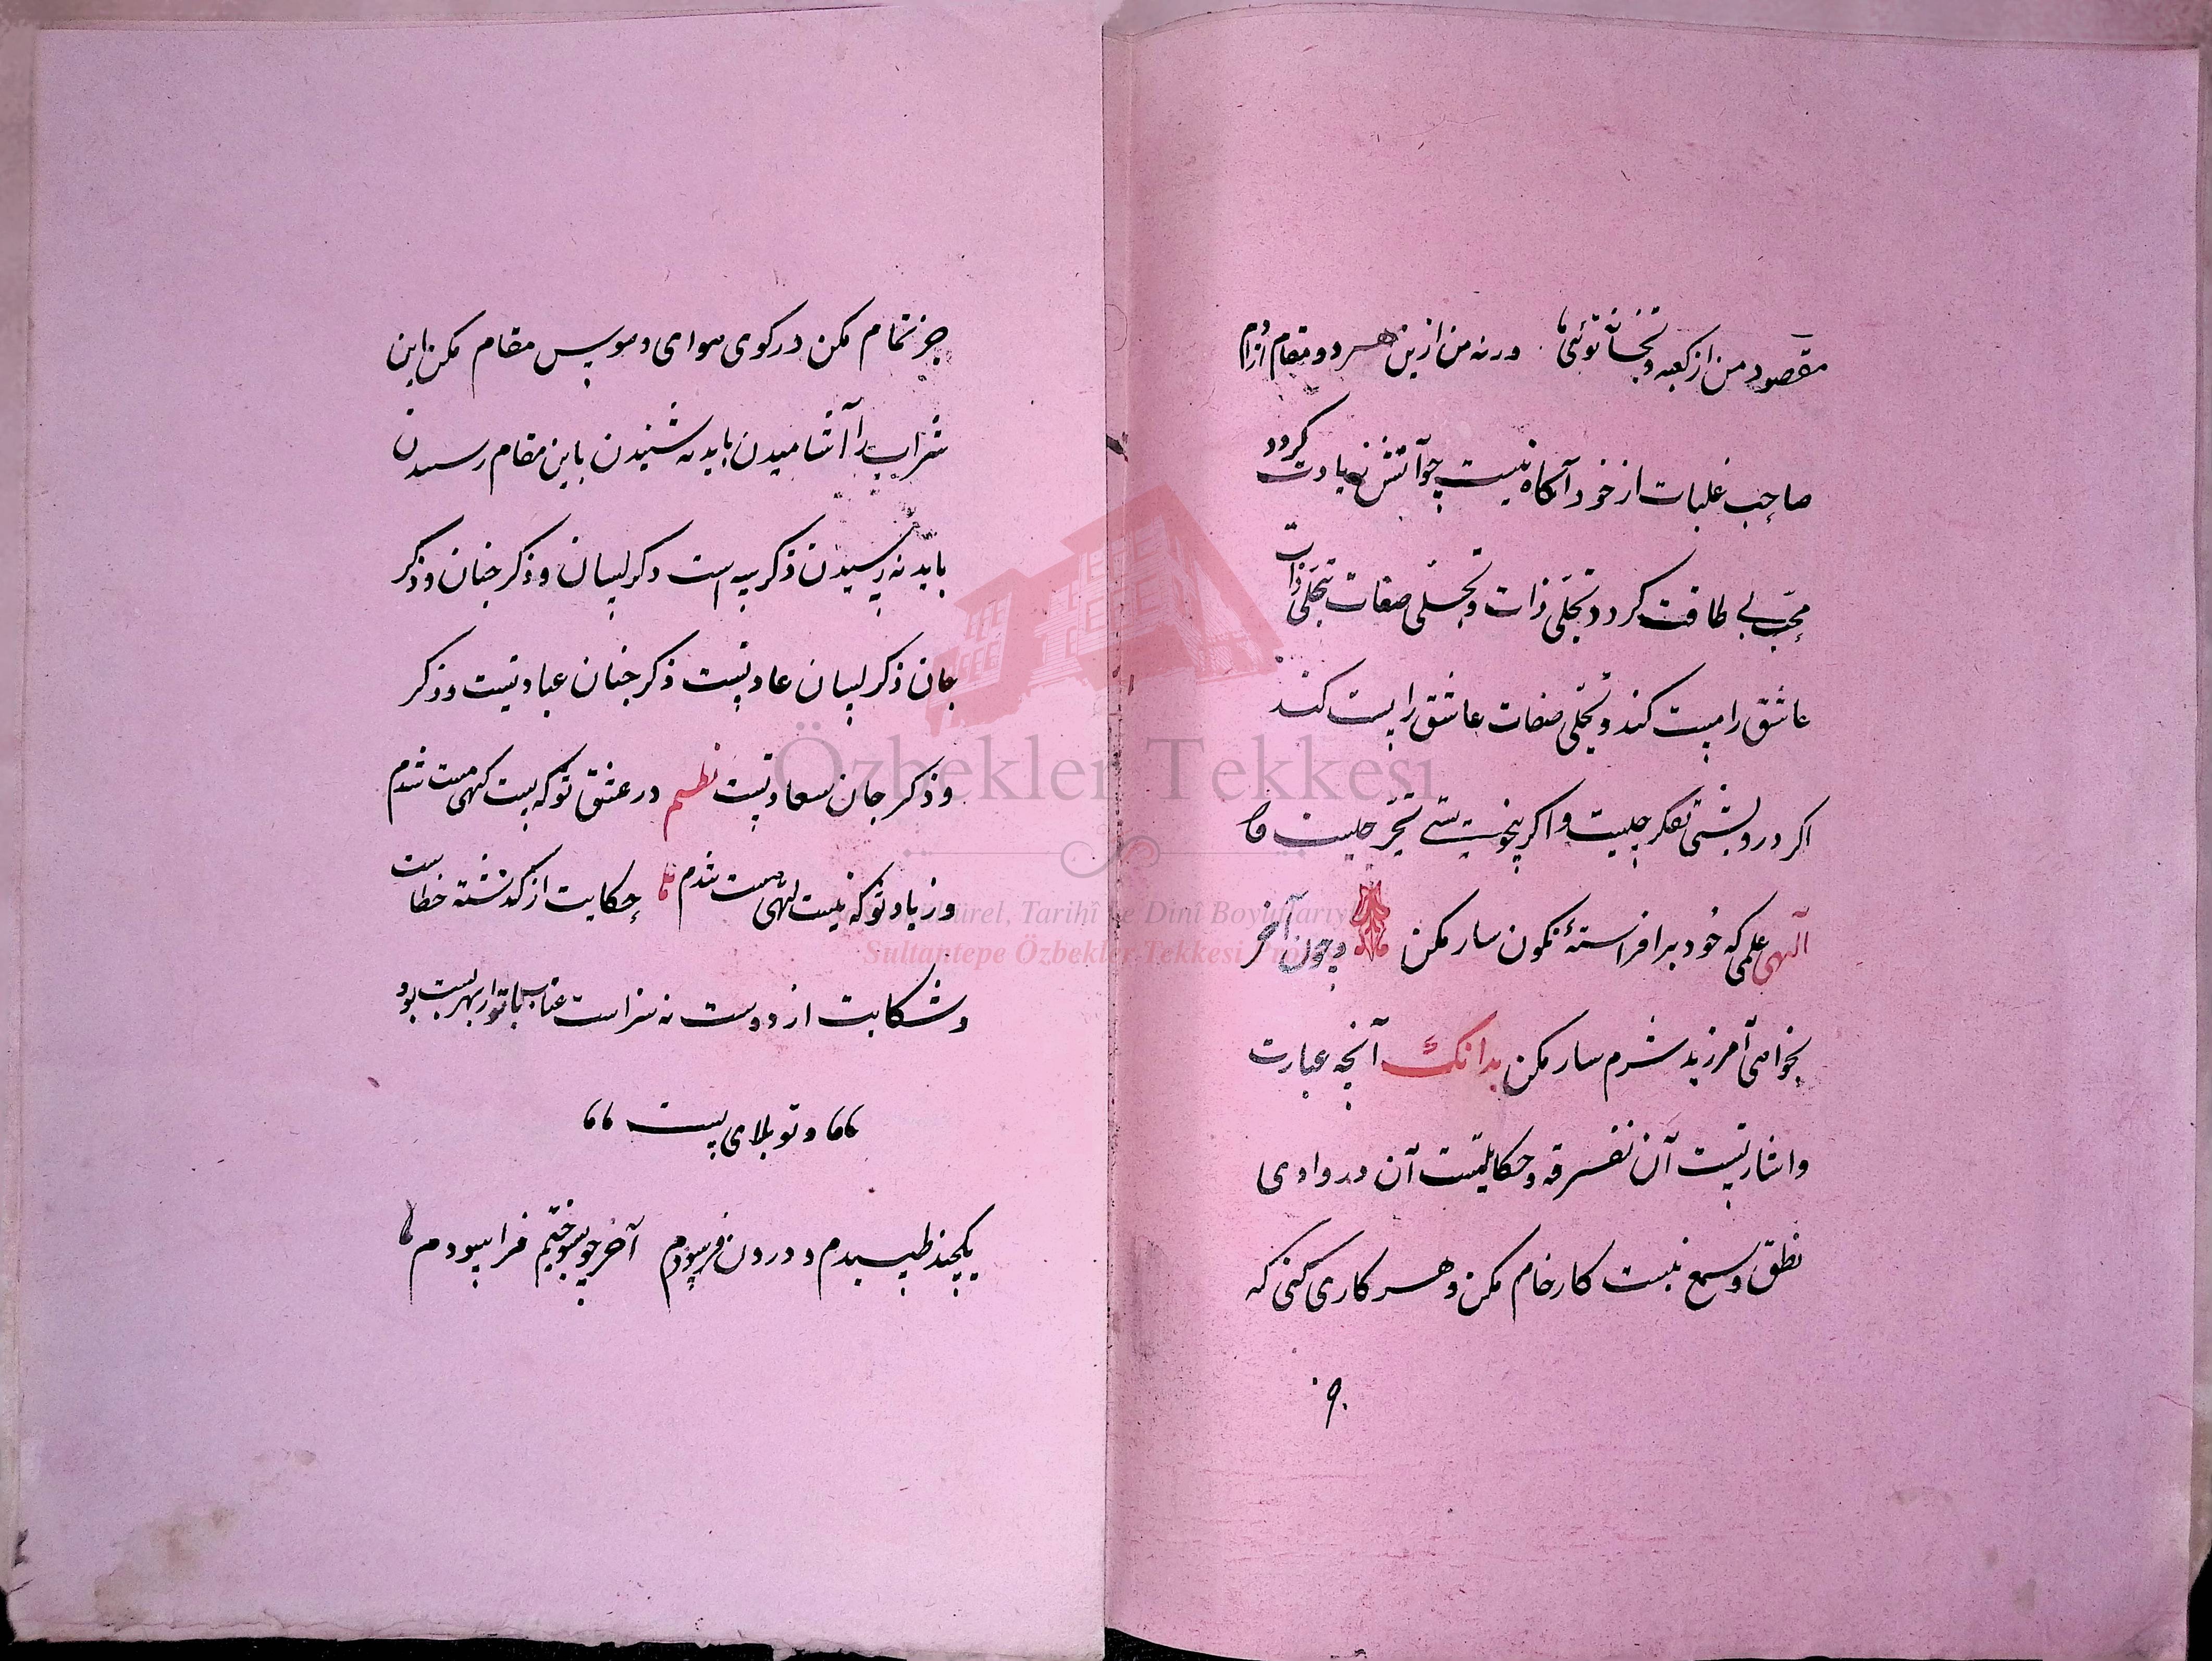 مقصود من از کعبه و بتخانه توئی ورنه من ازین هر دو مقام آزادم
صاحب غلبات از خود آگاه نیست چو آتش زیادت گردد
محب بی طاقت گردد تجلی ذات و تجلی صفات تجلی ذات
عاشق را مست کند و تجلی صفات عاشق را پست کند
اگر درویشی تفکر چیست و اگر بیخویشتنی تحیر چیست
آلهی علمی که خود برافراشتهٔ نگون سار مکن و چون آخر
بخواهی آمرزید شرم سار مکن بدانک آنچه عبارت
و اشارتیست آن تفرقه و حکایتیست آن در وادی
نطق و سمع نیست کار خام مکن و هر کاری کنی که
جز تمام مکن در کوی هوای و هوس مقام مکن این
شراب را آشامیدن باید نه شنیدن باین مقام رسیدن
باید نه پرسیدن ذکر سه است ذکر لسان و ذکر جنان و ذکر
جان ذکر لسان عادتیست ذکر جنان عبادتیست و ذکر
و ذکر جان سعادتیست نظم در عشق تو که پست کهی مست شدم
وز یاد تو که نیست کهی هست شدم حکایت از گذشته خطاست
و شکایت از دوست نه سزاست عتاب با تو از بهر بست بود
و تو بلای پست
یکچند طپیدم و درون فرسودم آخر چو بسوختم فرا سودم
Özbekler Tekkesi
Kültürel, Tarihî ve Dinî Boyutlarıyla
Sultantepe Özbekler Tekkesi